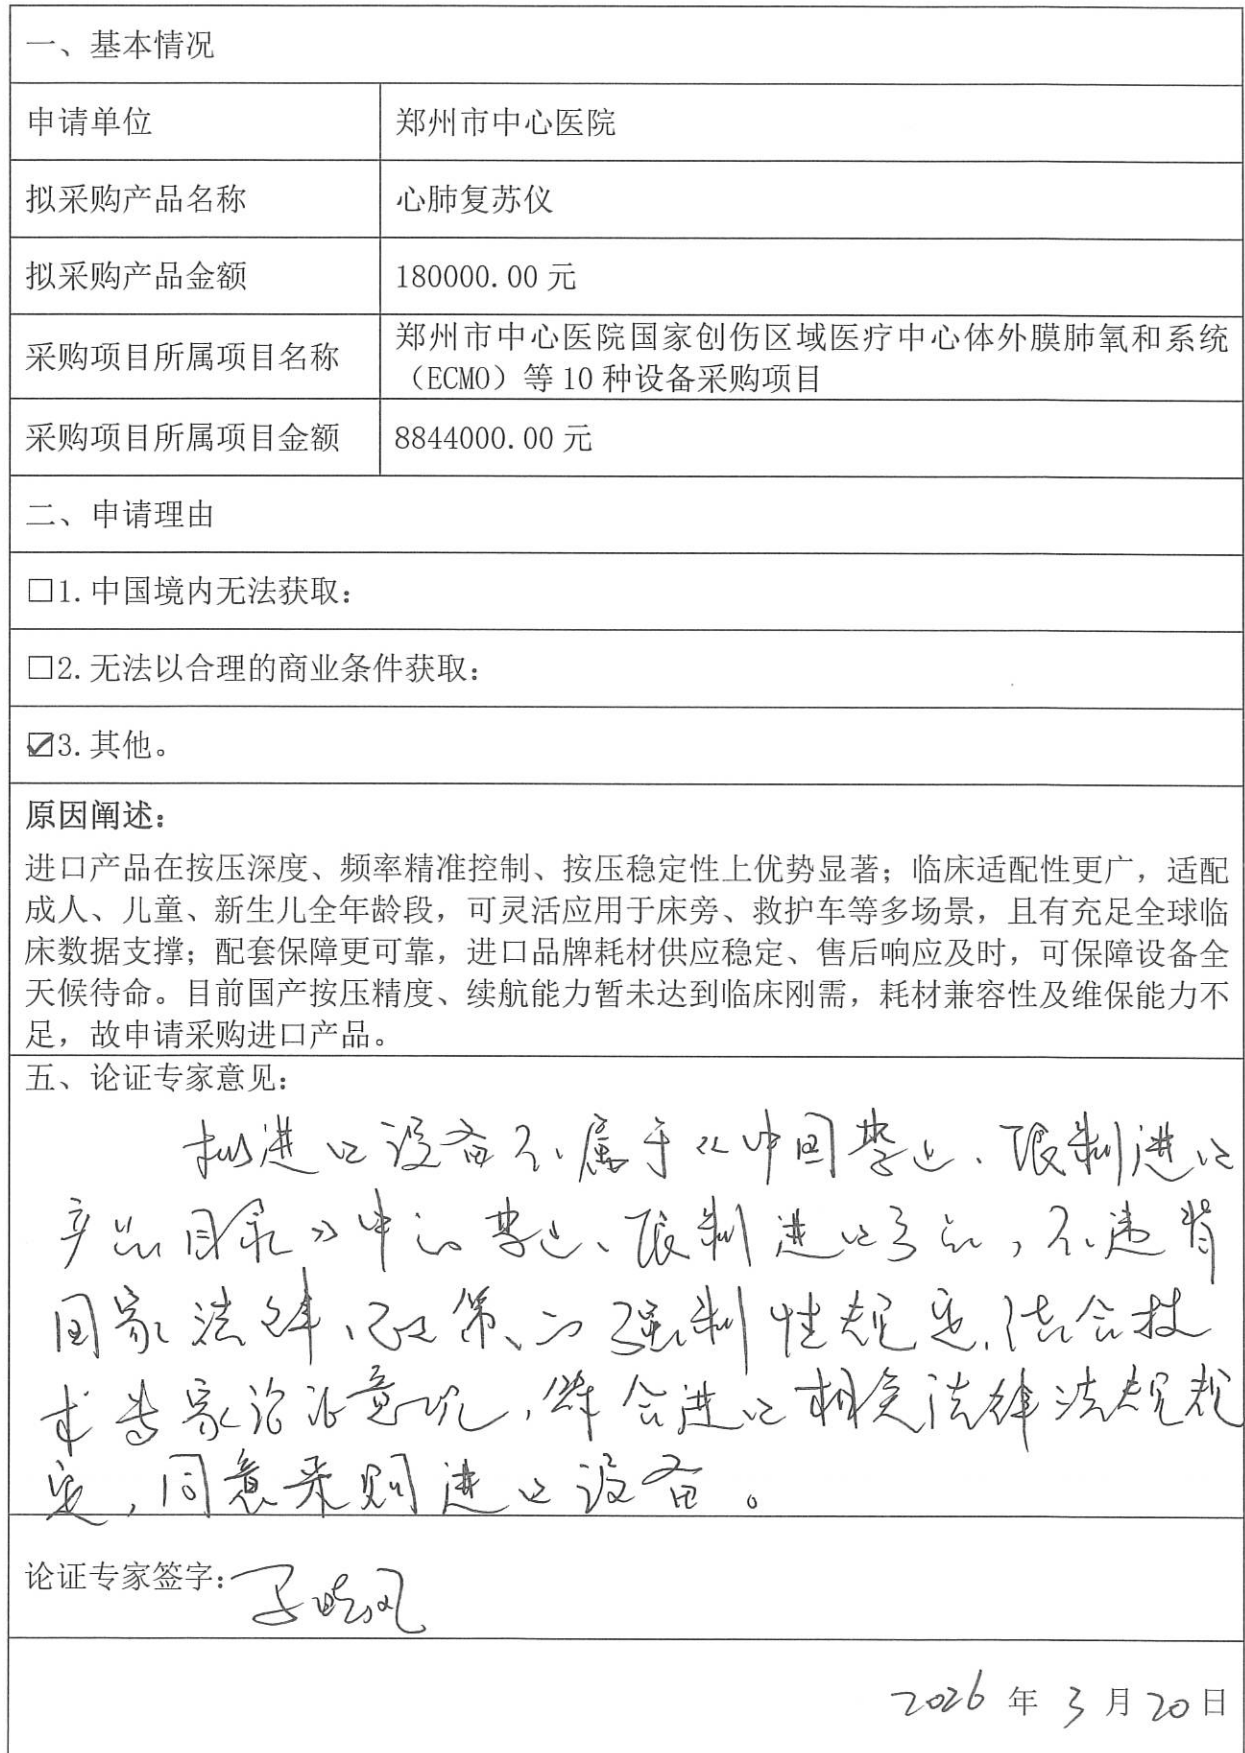 一、基本情况
申请单位
郑州市中心医院
拟采购产品名称
心肺复苏仪
拟采购产品金额
180000.00元
采购项目所属项目名称
郑州市中心医院国家创伤区域医疗中心体外膜肺氧和系统
（ECMO）等10种设备采购项目
采购项目所属项目金额
8844000.00元
二、申请理由
□1.中国境内无法获取：
□2.无法以合理的商业条件获取：
☑3.其他。
原因阐述：
进口产品在按压深度、频率精准控制、按压稳定性上优势显著；临床适配性更广，适配
成人、儿童、新生儿全年龄段，可灵活应用于床旁、救护车等多场景，且有充足全球临
床数据支撑；配套保障更可靠，进口品牌耗材供应稳定、售后响应及时，可保障设备全
天候待命。目前国产按压精度、续航能力暂未达到临床刚需，耗材兼容性及维保能力不
足，故申请采购进口产品。
五、论证专家意见：
拟进口设备不属于《中国禁止、限制进口
产品目录》中的禁止、限制进口产品，不违背
国家法律、政策的强制性规定，结合技
术专家论证意见，符合进口相关法律法规规
定，同意采购进口设备。
论证专家签字：
2026年3月20日